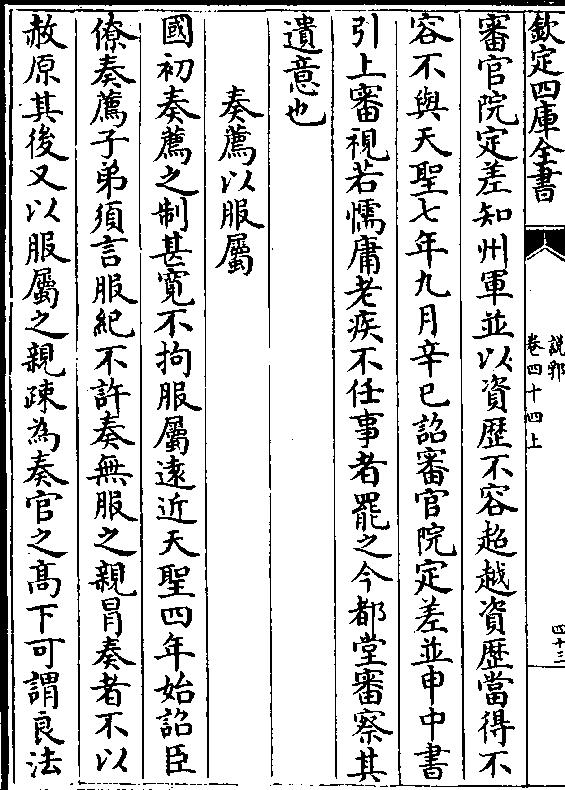 欽定四庫全書
說郛
卷四十四上
四十三
審官院定差知州軍並以資歷不容超越資歷當得不
容不與天聖七年九月辛巳詔審官院定差並申中書
引上審視若懦庸老疾不任事者罷之今都堂審察其
遺意也
奏薦以服屬
國初奏薦之制甚寛不拘服屬逺近天聖四年始詔臣
僚奏薦子弟須言服紀不許奏無服之親冒奏者不以
赦原其後又以服屬之親疎為奏官之髙下可謂良法